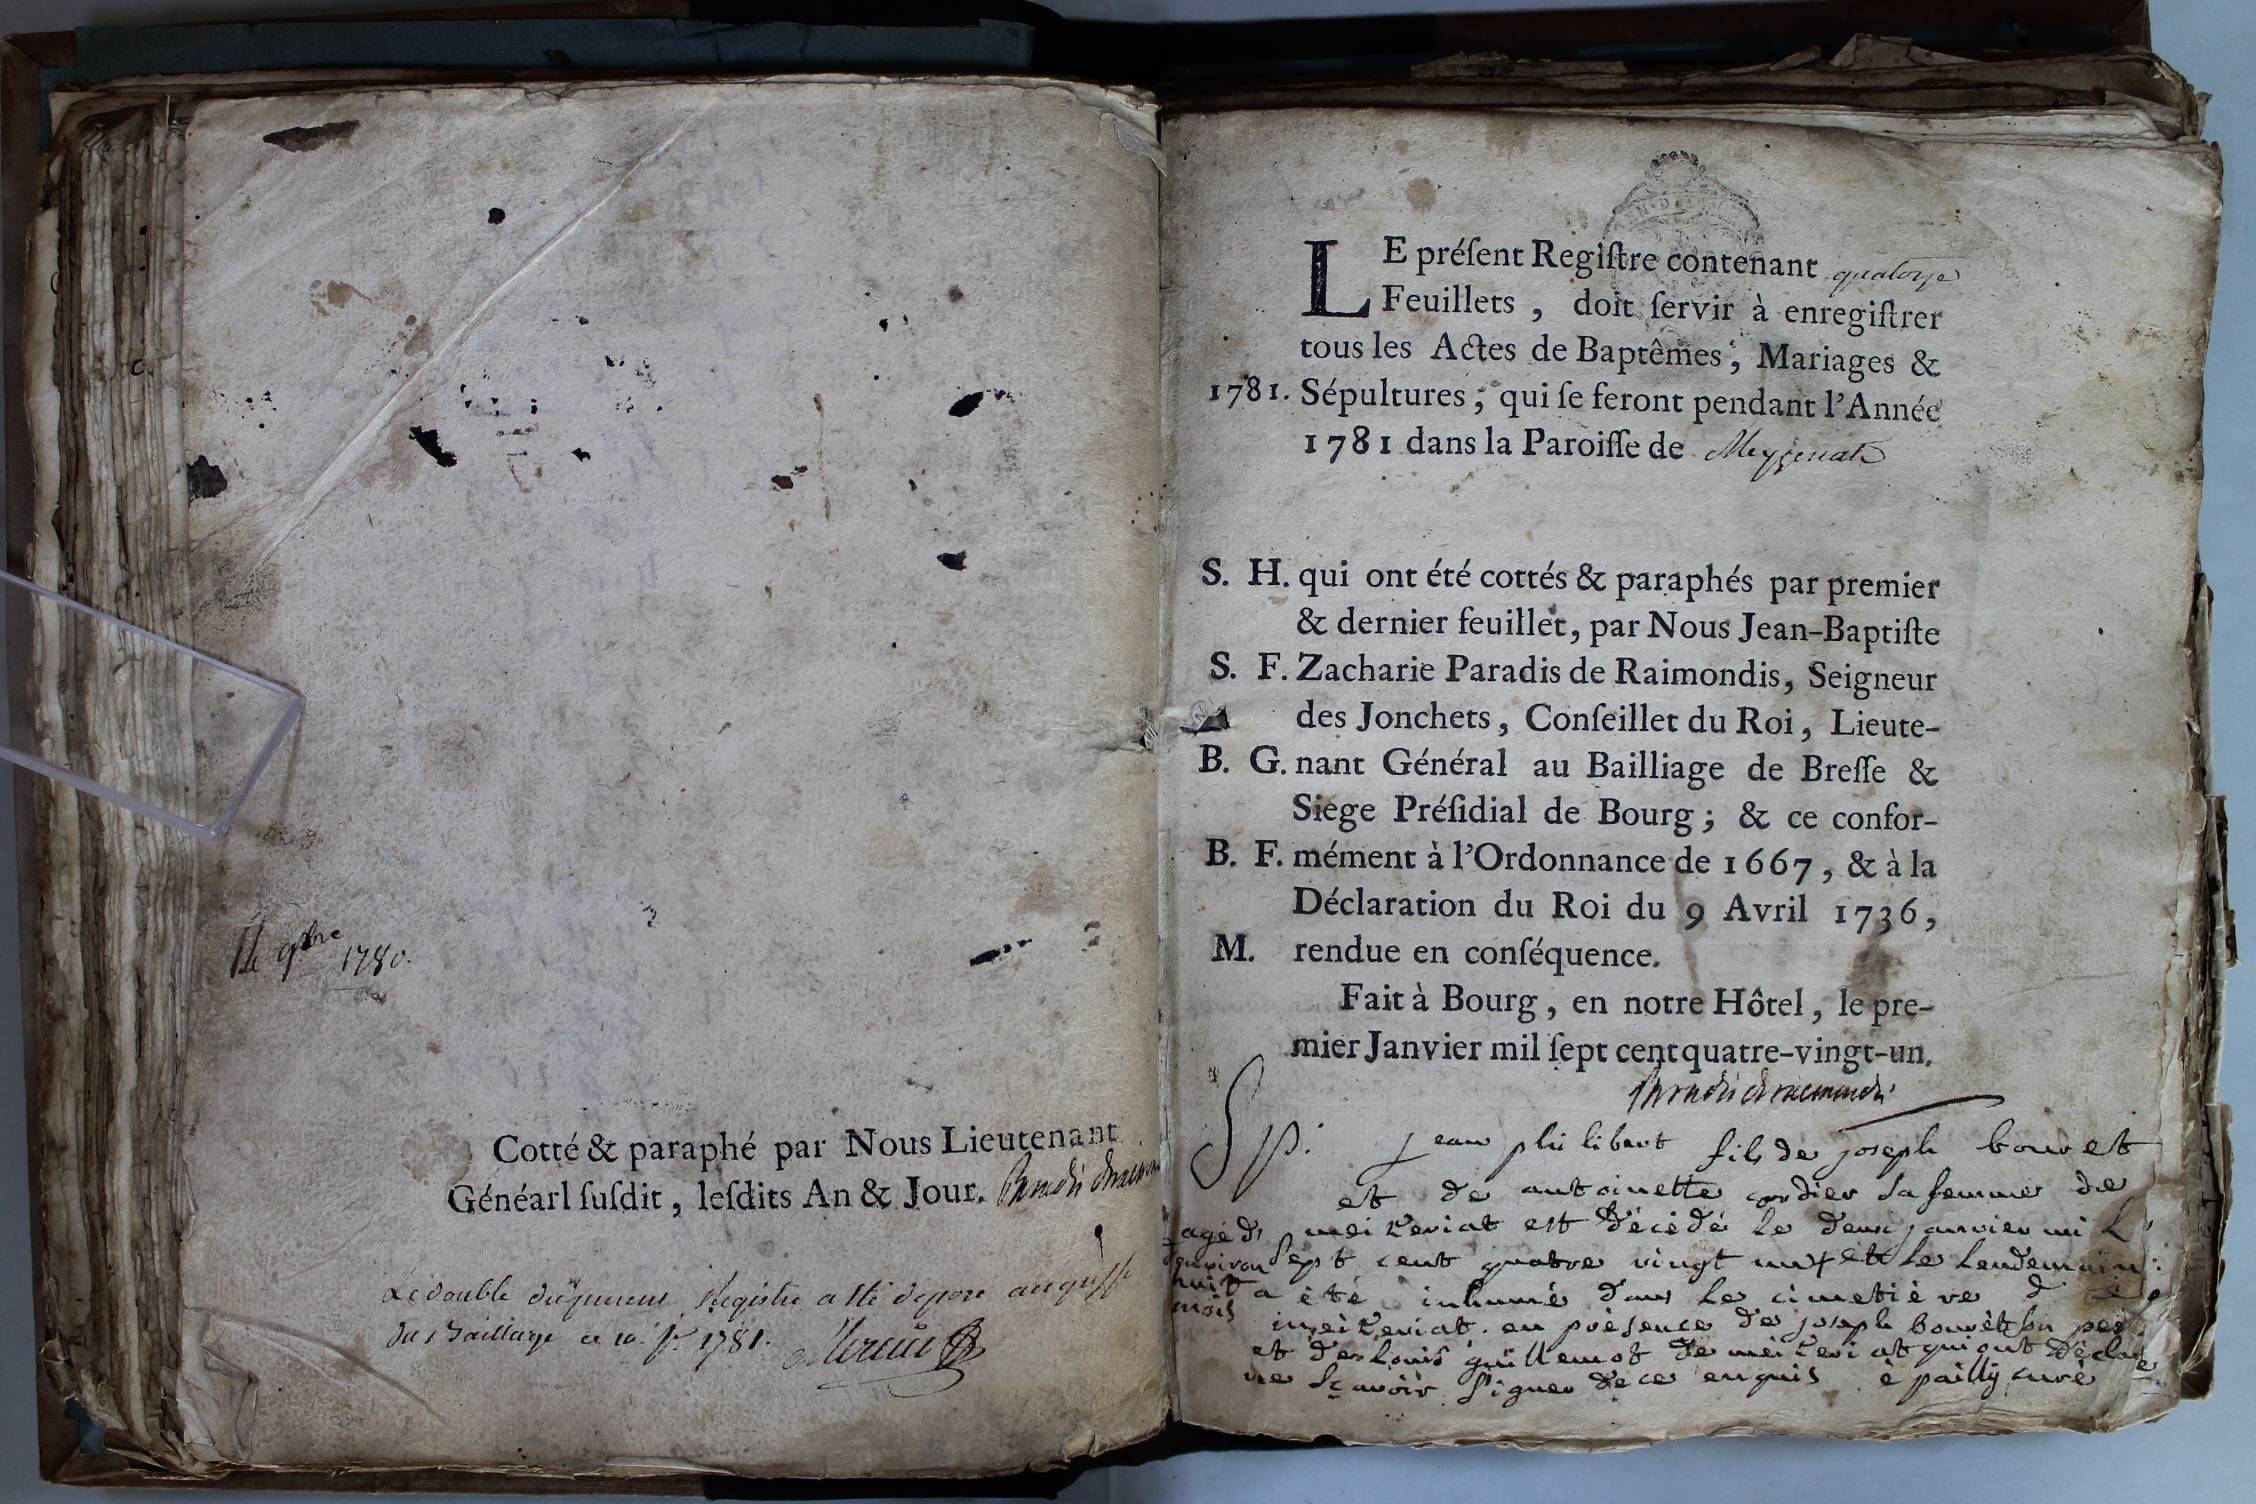 14 9bre
1780.
Cotté & paraphé par Nous Lieutenant
Généarl ſuſdit, leſdits An & Jour.
Le double du present Registre a été déposé au greffe
du Baillage ce 10. 1781.
LE préſent Regiſtre contenant quatorze
Feuillets, doit ſervir à enregiſtrer
tous les Actes de Baptêmes, Mariages &
1781. Sépultures, qui ſe feront pendant l'Année
1781 dans la Paroiſſe de Meyzeriat
S. H. qui ont été cottés & paraphés par premier
& dernier feuillet, par Nous Jean-Baptiſte
S. F. Zacharie Paradis de Raimondis, Seigneur
des Jonchets, Conſeillet du Roi, Lieute-
B. G. nant Général au Bailliage de Breſſe &
Siege Préſidial de Bourg; & ce confor-
B. F. mément à l'Ordonnance de 1667, & à la
Déclaration du Roi du 9 Avril 1736,
M. rendue en conſéquence.
Fait à Bourg, en notre Hôtel, le pre-
mier Janvier mil ſept cent quatre-vingt-un.
Paradis de raimondis
Sp. jean philibert fils de joseph bouvet
et de antoinette cordier sa femme de
meizeriat est décédé le deux janvier mil
sept cent quatre vingt un et le lendemain
a été inhumé dans le cimetière de
meizeriat. en présence de joseph bouvet son père
et de Louis guillemot de meizeriat qui ont déclaré
ne sçavoir signer de ce enquis pailly curé
agé d'
environ
huit
mois